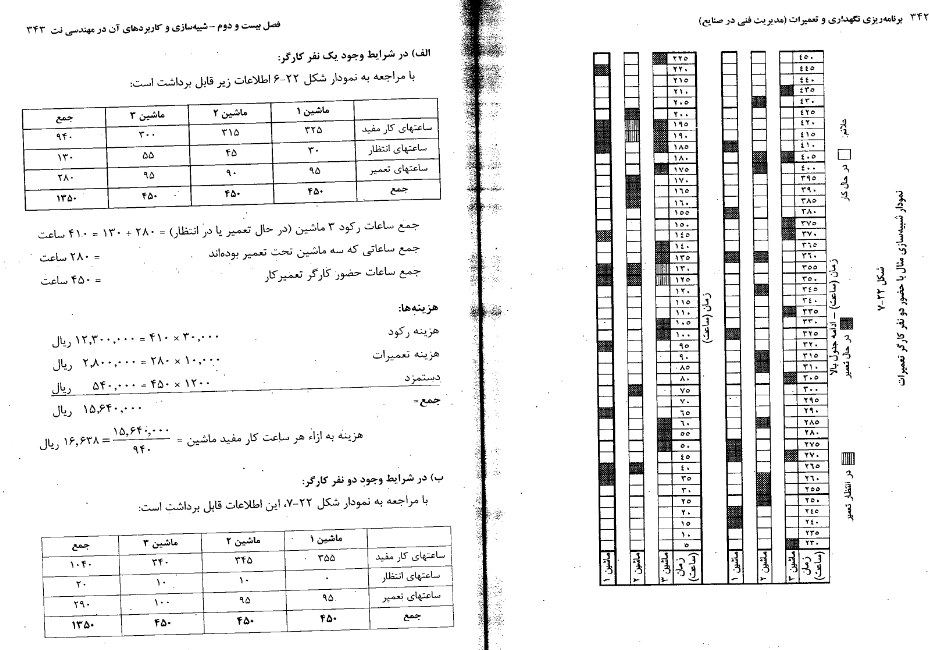 ۳۴۲ برنامه‌ریزی نگهداری و تعمیرات (مدیریت فنی در صنایع)
ماشین ۱
ماشین ۲
ماشین ۳
زمان (ساعت)
۵ ۱۰ ۱۵ ۲۰ ۲۵ ۳۰ ۳۵ ۴۰ ۴۵ ۵۰ ۵۵ ۶۰ ۶۵ ۷۰ ۷۵ ۸۰ ۸۵ ۹۰ ۹۵ ۱۰۰ ۱۰۵ ۱۱۰ ۱۱۵ ۱۲۰ ۱۲۵ ۱۳۰ ۱۳۵ ۱۴۰ ۱۴۵ ۱۵۰ ۱۵۵ ۱۶۰ ۱۶۵ ۱۷۰ ۱۷۵ ۱۸۰ ۱۸۵ ۱۹۰ ۱۹۵ ۲۰۰ ۲۰۵ ۲۱۰ ۲۱۵ ۲۲۰ ۲۲۵
زمان (ساعت)
ماشین ۱
ماشین ۲
ماشین ۳
زمان (ساعت)
۲۳۰ ۲۳۵ ۲۴۰ ۲۴۵ ۲۵۰ ۲۵۵ ۲۶۰ ۲۶۵ ۲۷۰ ۲۷۵ ۲۸۰ ۲۸۵ ۲۹۰ ۲۹۵ ۳۰۰ ۳۰۵ ۳۱۰ ۳۱۵ ۳۲۰ ۳۲۵ ۳۳۰ ۳۳۵ ۳۴۰ ۳۴۵ ۳۵۰ ۳۵۵ ۳۶۰ ۳۶۵ ۳۷۰ ۳۷۵ ۳۸۰ ۳۸۵ ۳۹۰ ۳۹۵ ۴۰۰ ۴۰۵ ۴۱۰ ۴۱۵ ۴۲۰ ۴۲۵ ۴۳۰ ۴۳۵ ۴۴۰ ۴۴۵ ۴۵۰
زمان (ساعت) – ادامه جدول بالا
علائم: در حال کار در حال تعمیر در انتظار تعمیر
شکل ۲۲-۷
نمودار شبیه‌سازی مثال با حضور دو نفر کارگر تعمیرات
فصل بیست و دوم – شبیه‌سازی و کاربردهای آن در مهندسی نت ۳۴۳
الف) در شرایط وجود یک نفر کارگر:
با مراجعه به نمودار شکل ۲۲-۶ اطلاعات زیر قابل برداشت است:
ماشین ۱ ماشین ۲ ماشین ۳ جمع
ساعتهای کار مفید ۳۲۵ ۳۱۵ ۳۰۰ ۹۴۰
ساعتهای انتظار ۳۰ ۴۵ ۵۵ ۱۳۰
ساعتهای تعمیر ۹۵ ۹۰ ۹۵ ۲۸۰
جمع ۴۵۰ ۴۵۰ ۴۵۰ ۱۳۵۰
جمع ساعات رکود ۳ ماشین (در حال تعمیر یا در انتظار) = ۲۸۰ + ۱۳۰ = ۴۱۰ ساعت
جمع ساعاتی که سه ماشین تحت تعمیر بوده‌اند = ۲۸۰ ساعت
جمع ساعات حضور کارگر تعمیرکار = ۴۵۰ ساعت
هزینه‌ها:
هزینه رکود ۳۰,۰۰۰ × ۴۱۰ = ۱۲,۳۰۰,۰۰۰ ریال
هزینه تعمیرات ۱۰,۰۰۰ × ۲۸۰ = ۲,۸۰۰,۰۰۰ ریال
دستمزد ۱۲۰۰ × ۴۵۰ = ۵۴۰,۰۰۰ ریال
جمع= ۱۵,۶۴۰,۰۰۰ ریال
هزینه به ازاء هر ساعت کار مفید ماشین = ۱۵,۶۴۰,۰۰۰ / ۹۴۰ = ۱۶,۶۳۸ ریال
ب) در شرایط وجود دو نفر کارگر:
با مراجعه به نمودار شکل ۲۲-۷، این اطلاعات قابل برداشت است:
ماشین ۱ ماشین ۲ ماشین ۳ جمع
ساعتهای کار مفید ۳۵۵ ۳۴۵ ۳۴۰ ۱۰۴۰
ساعتهای انتظار ۰ ۱۰ ۱۰ ۲۰
ساعتهای تعمیر ۹۵ ۹۵ ۱۰۰ ۲۹۰
جمع ۴۵۰ ۴۵۰ ۴۵۰ ۱۳۵۰